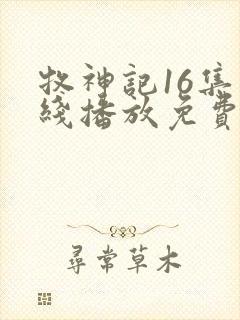 牧神記16集
綫播放免費
尋常草木